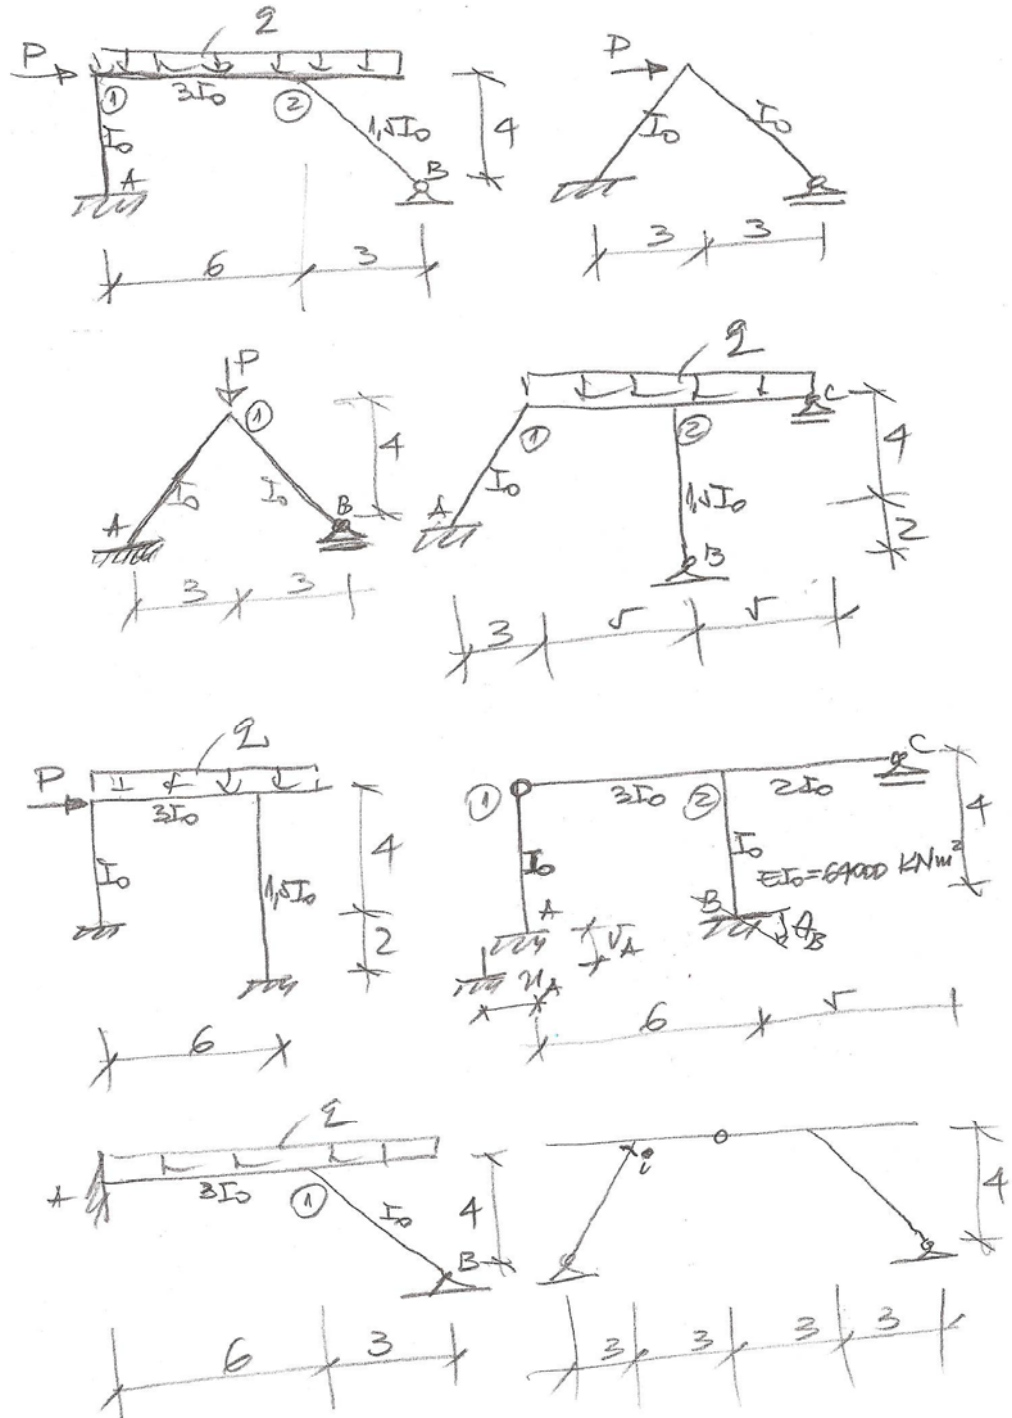 q
P
P
① 3I₀ ②
I₀
1,5I₀
4
I₀
I₀
A
B
6
3
3
3
P
①
4
I₀
I₀
A
B
3
3
q
C
①
②
4
I₀
1,5I₀
A
B
2
3
5
5
q
P
3I₀
I₀
1,5I₀
4
2
6
C
①
3I₀ ② 2I₀
4
I₀
I₀
EI₀=64000 KNm²
A
B
θB
vA
uA
6
5
q
A
3I₀
①
I₀
4
B
6
3
i
4
3
3
3
3